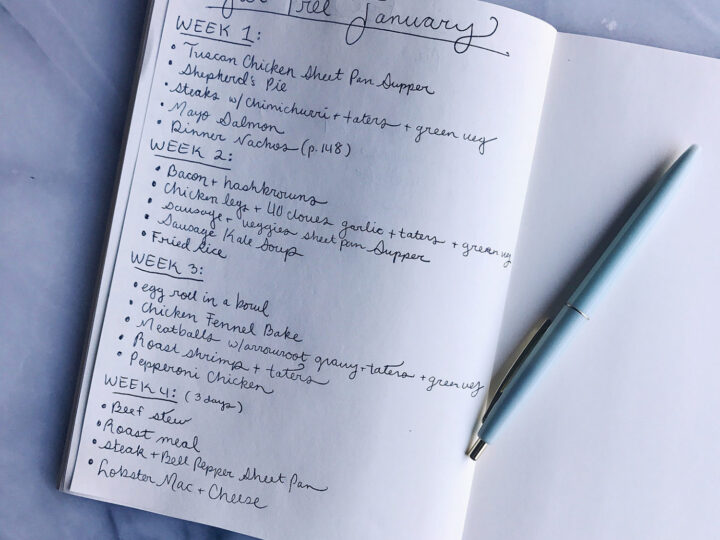 Free January
WEEK 1:
• Tuscan Chicken Sheet Pan Supper
• Shepherd's Pie
• Steaks w/ chimichurri + taters + green veg
• Mayo Salmon
• Dinner Nachos (p. 148)
WEEK 2:
• Bacon + hashbrowns
• Chicken legs + 40 cloves garlic + taters + green veg
• sausage + veggies sheet pan Supper
• Sausage Kale Soup
• Fried Rice
WEEK 3:
• egg roll in a bowl
• Chicken Fennel Bake
• Meatballs w/arrowroot gravy + taters + green veg
• Roast shrimp + taters
• Pepperoni Chicken
WEEK 4: (3 days)
• Beef stew
• Roast meal
• Steak + Bell Pepper Sheet Pan
• Lobster Mac + Cheese